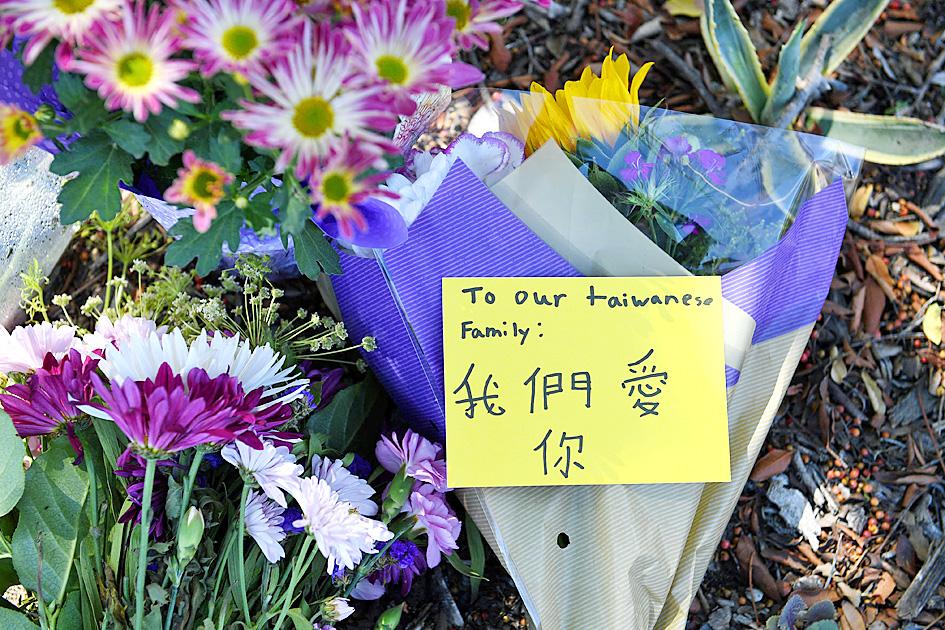 To our taiwanese
Family:
我們愛
你